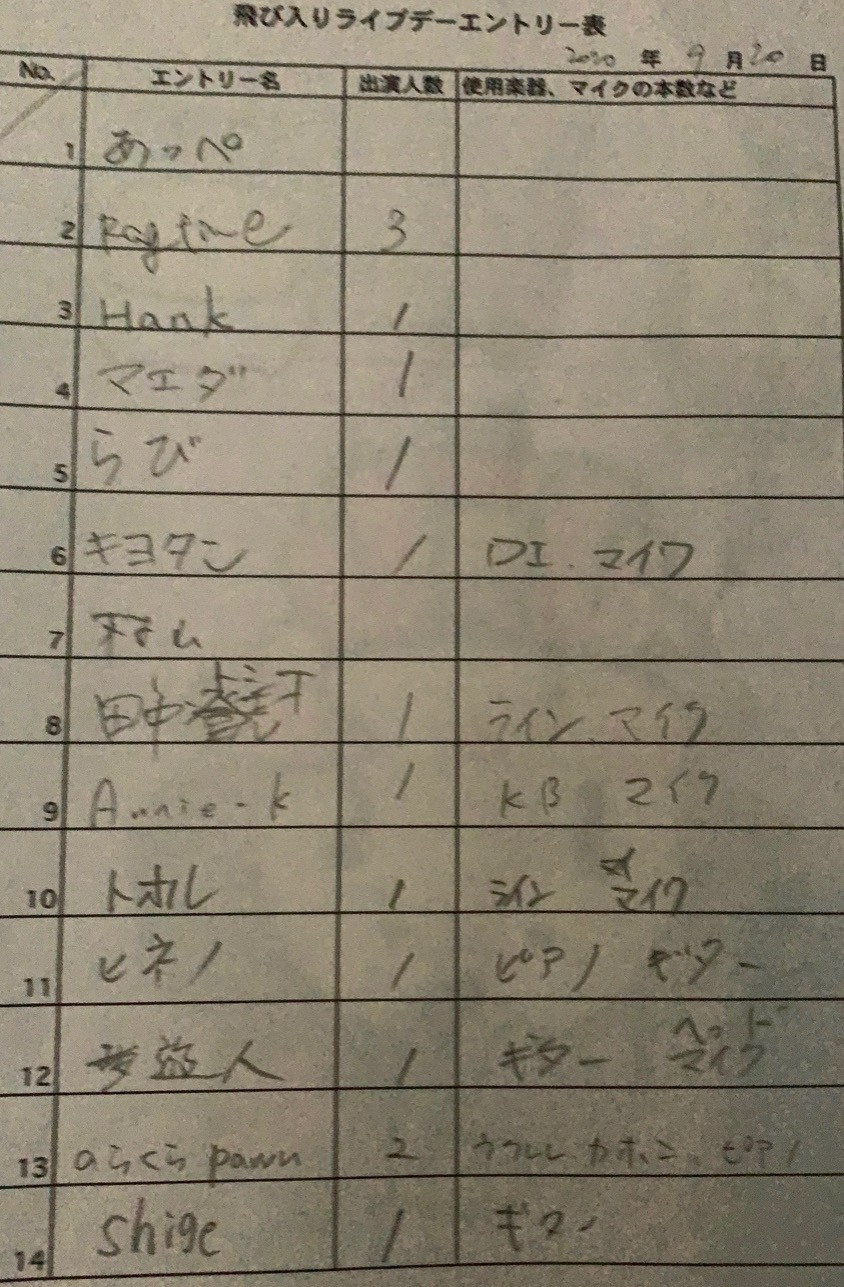 飛び入りライブデーエントリー表
2020 年 9 月 20 日
No. エントリー名 出演人数 使用楽器、マイクの本数など
1 あっぺ
2 Ragtime 3
3 Hank 1
4 マエダ 1
5 らび 1
6 キヨタン 1 DI. マイク
7
8 田中 1 ライン、マイク
9 Annie-k 1 KB マイク
10 トホル 1 ライン マイク
11 ヒネノ 1 ピアノ ギター
12 遊人 1 ギター ヘッド マイク
13 のらくら pawn 2 ウクレレ カホン、ピアノ
14 Shige 1 ギター